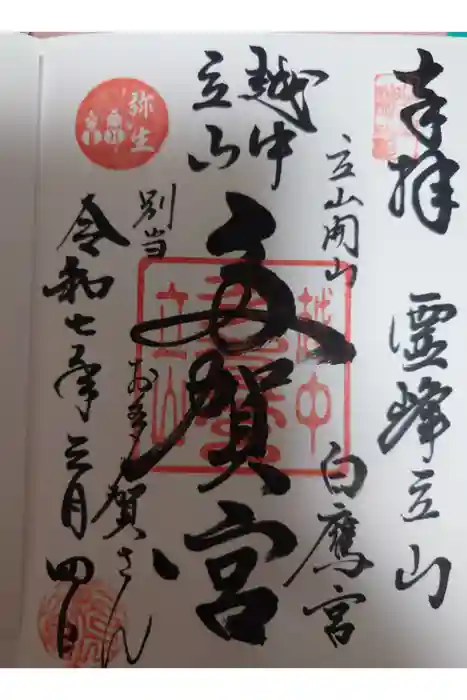 奉拝 霊峰立山
立山開山 白鷹宮
越中
立山
多賀宮
別当 お多賀さん
令和七年三月四日
弥生
越中
立山